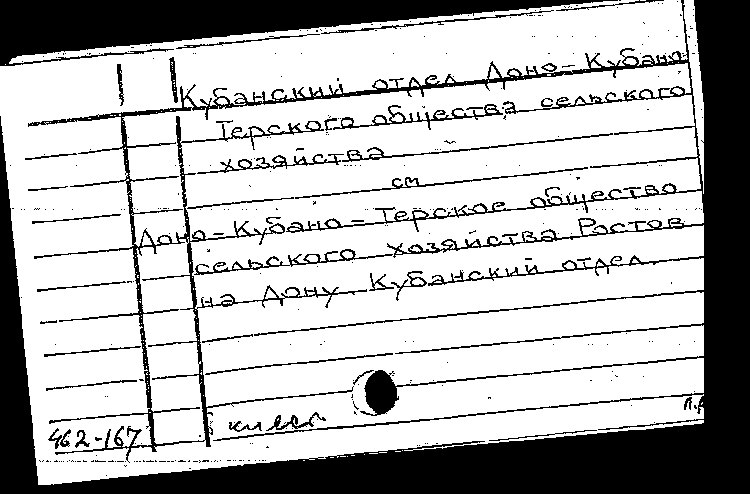 Кубанский отдел Доно-Кубано
Терского общества сельского
хозяйства
см
Доно=Кубано=Терское общество
сельского хозяйства. Ростов
на Дону. Кубанский отдел.
462-167